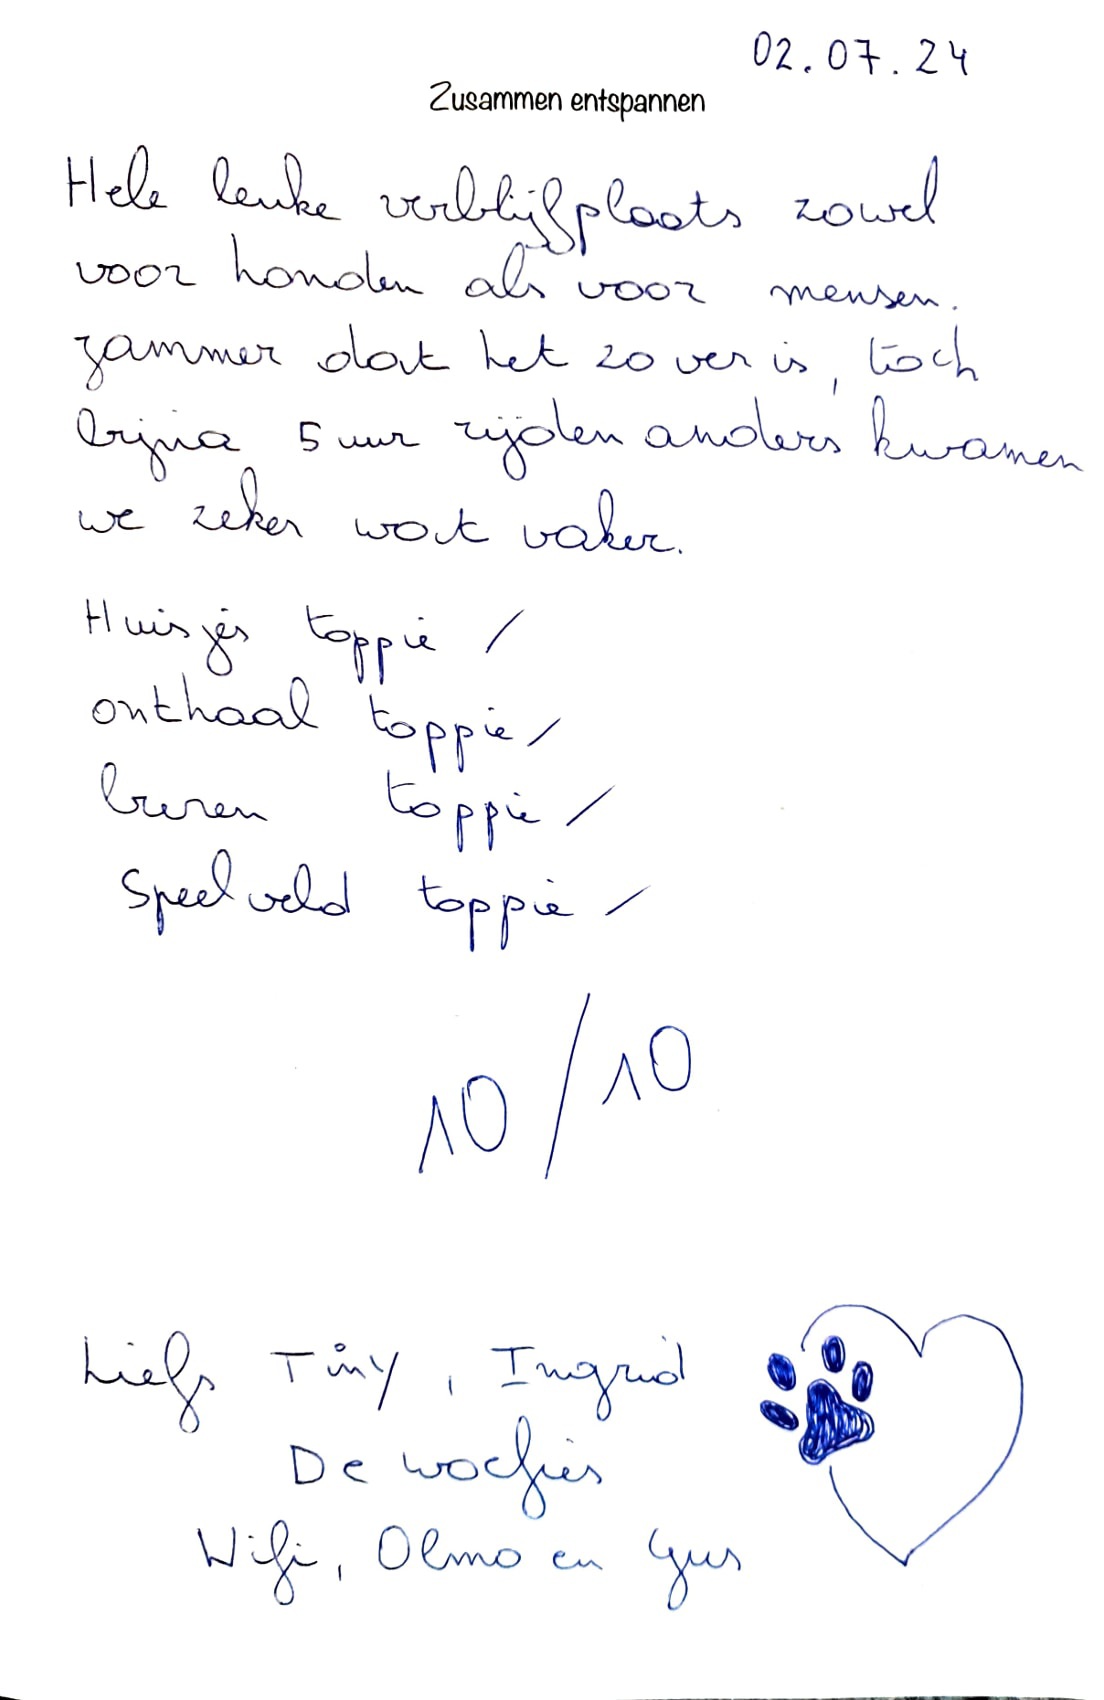 02.07.24
Zusammen entspannen
Hele leuke verblijfplaats zowel
voor honden als voor mensen.
zammer dat het zo ver is, toch
bijna 5 uur rijden anders kwamen
we zeker wat vaker.
Huisjes toppie /
onthaal toppie /
buren toppie /
Speelveld toppie /
10/10
Liefs Tiny, Ingrid
De woefies
Wifi, Olmo en Gus